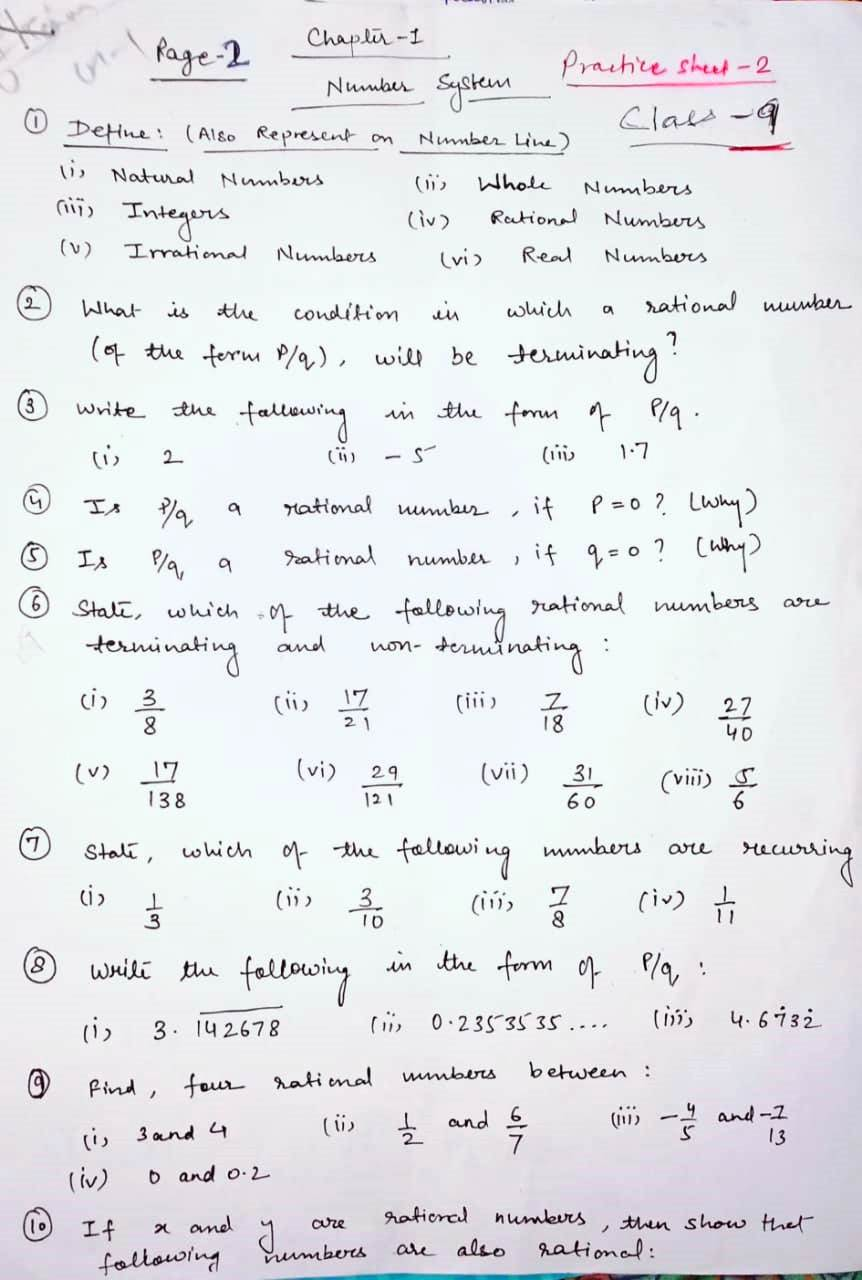 Page-2 Chapter-1 Practice sheet-2
Number System Class-9
① Define: (Also Represent on Number Line)
(i) Natural Numbers (ii) Whole Numbers
(iii) Integers (iv) Rational Numbers
(v) Irrational Numbers (vi) Real Numbers
② What is the condition in which a rational number
(of the form P/q), will be terminating?
③ Write the following in the form of P/q.
(i) 2 (ii) -5 (iii) 1.7
④ Is P/q a rational number, if P=0? (Why)
⑤ Is P/q a rational number, if q=0? (Why)
⑥ State, which of the following rational numbers are
terminating and non-terminating:
(i) 3/8 (ii) 17/21 (iii) 7/18 (iv) 27/40
(v) 17/138 (vi) 29/121 (vii) 31/60 (viii) 5/6
⑦ State, which of the following numbers are recurring
(i) 1/3 (ii) 3/10 (iii) 7/8 (iv) 1/11
⑧ Write the following in the form of P/q:
(i) 3.1̅4̅2̅6̅7̅8̅ (ii) 0.2353535.... (iii) 4.67̇32̇
⑨ Find, four rational numbers between:
(i) 3 and 4 (ii) 1/2 and 6/7 (iii) -4/5 and -7/13
(iv) 0 and 0.2
⑩ If x and y are rational numbers, then show that
following numbers are also rational: